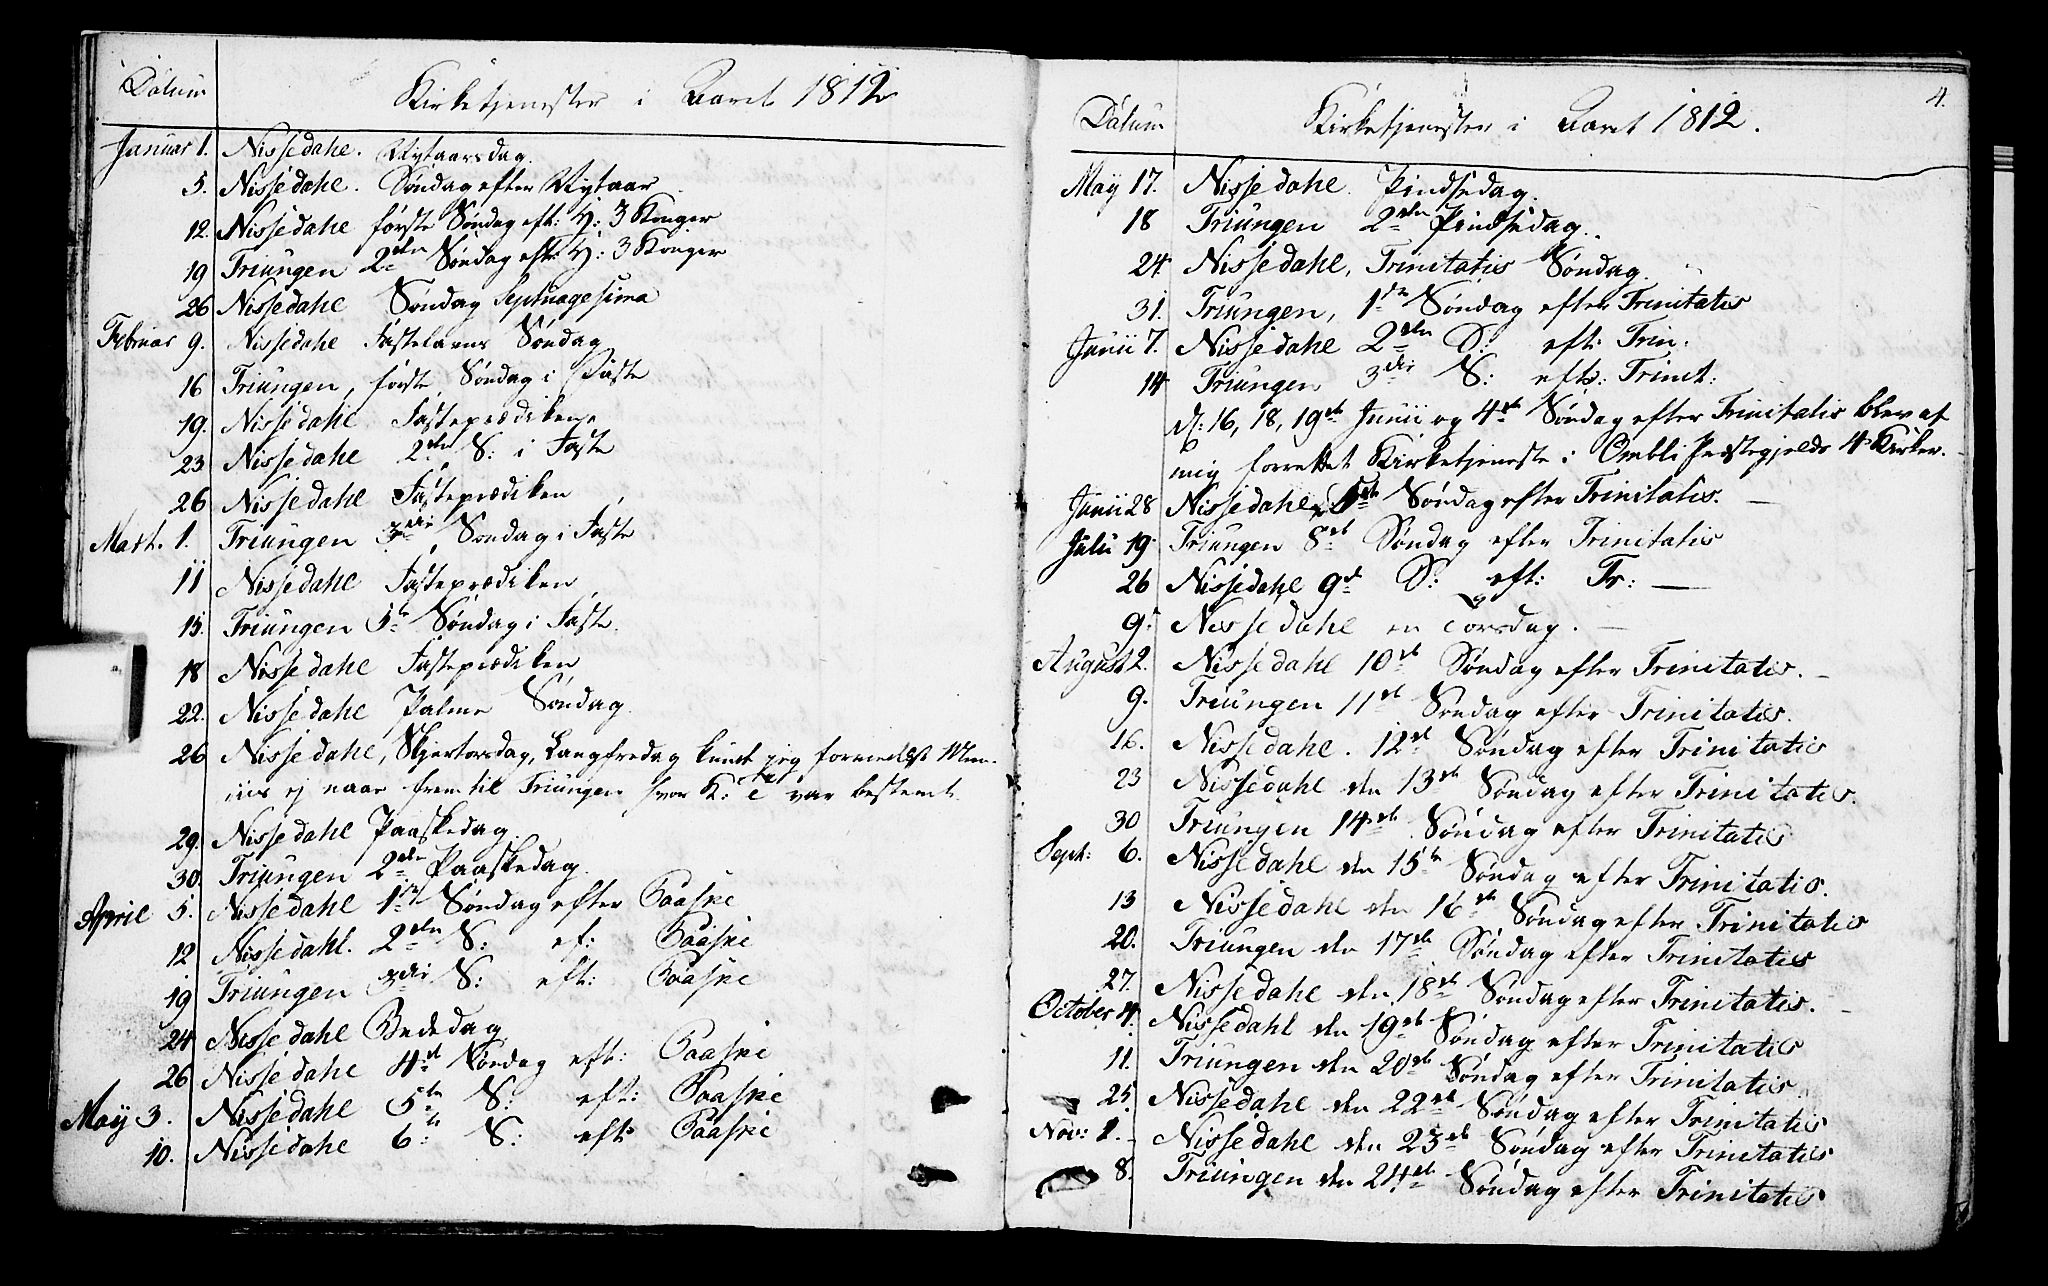 Datum
Kirketjenester i Aaret 1812
Januar 1. Nissedahl. Nytaarsdag.
5. Nissedahl. Søndag efter Nytaar
12. Nissedahl første Søndag eft: H: 3 Konger
19 Triungen 2den Søndag eft: H: 3 Konger
26 Nissedahl Søndag Septuagesima
Februar 9. Nissedahl Fastelavns Søndag
16 Triungen, første Søndag i Faste
19. Nissedahl Fasteprædiken
23 Nissedahl 2den S: i Faste
26 Nissedahl Fasteprædiken
Mart. 1. Triungen 3die Søndag i Faste
11 Nissedahl Fasteprædiken
15. Triungen 5te Søndag i Faste.
18 Nissedahl Fasteprædiken
22. Nissedahl Palme Søndag
26 Nissedahl, Skjertorsdag, Langfredag kunde jeg formedelst
ej naae frem til Triungen hvor K: T var bestemt.
29. Nissedahl Paaskedag.
30. Triungen 2den Paaskedag.
April 5. Nissedahl 1ste Søndag efter Paaske
12 Nissedahl. 2den S: ef: Paaske
19 Triungen 3die S: eft: Paaske
24 Nissedahl Bededag
26 Nissedahl 4de Søndag eft: Paaske
May 3. Nissedahl 5te S: eft: Paaske
10. Nissedahl 6te S: eft: Paaske
4.
Datum
Kirketjenester i Aaret 1812.
May 17. Nissedahl. Pindsedag.
18 Triungen 2den Pindsedag.
24 Nissedahl, Trinitatis Søndag.
31. Triungen, 1ste Søndag efter Trinitatis
Junii 7. Nissedahl 2den S: eft: Trin.
14 Triungen 3die S: eft: Trinit:
d: 16, 18, 19de Junii og 4de Søndag efter Trinitatis blev af
mig forrettet Kirketjeneste i Ombli Præstegjelds 4 Kirker.
Junii 28 Nissedahl 5te Søndag efter Trinitatis.
Julii 19 Triungen 8de Søndag efter Trinitatis
26 Nissedahl 9de S: eft: Tr:
9. Nissedahl en Torsdag.
August 2. Nissedahl 10de Søndag efter Trinitatis.
9. Triungen 11te Søndag efter Trinitatis.
16. Nissedahl. 12te Søndag efter Trinitatis
23 Nissedahl den 13de Søndag efter Trinitatis.
30 Triungen 14de Søndag efter Trinitatis
Sept: 6. Nissedahl den 15de Søndag efter Trinitatis.
13 Nissedahl den 16de Søndag efter Trinitatis
20. Triungen den 17de Søndag efter Trinitatis
27. Nissedahl den 18de Søndag efter Trinitatis.
October 4. Nissedahl den 19de Søndag efter Trinitatis
11. Triungen den 20de Søndag efter Trinitatis
25. Nissedahl den 22de Søndag efter Trinitatis
Nov: 1. Nissedahl den 23de Søndag efter Trinitatis
8. Triungen den 24de Søndag efter Trinitatis